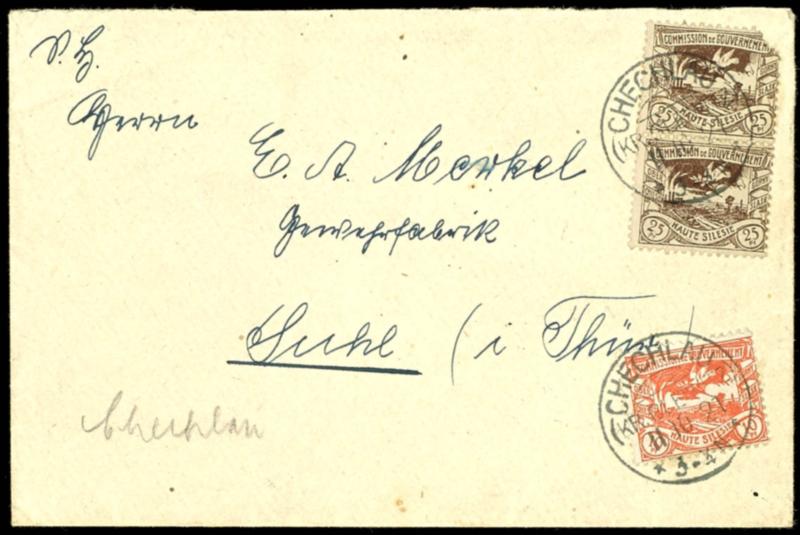 S. H.
Herrn
E. A. Merkel
Gewehrfabrik
Suhl (i Thür)
Chechlau
COMMISSION DE GOUVERNEMENT
25 HAUTE·SILESIE 25
COMMISSION DE GOUVERNEMENT
25 HAUTE SILESIE 25
CHECHLAU
(KR.
CHECHLAU
(KR.
11 10 21
* 3-4 N *
COMMISSION DE GOUVERNEMENT
HAUTE SILESIE